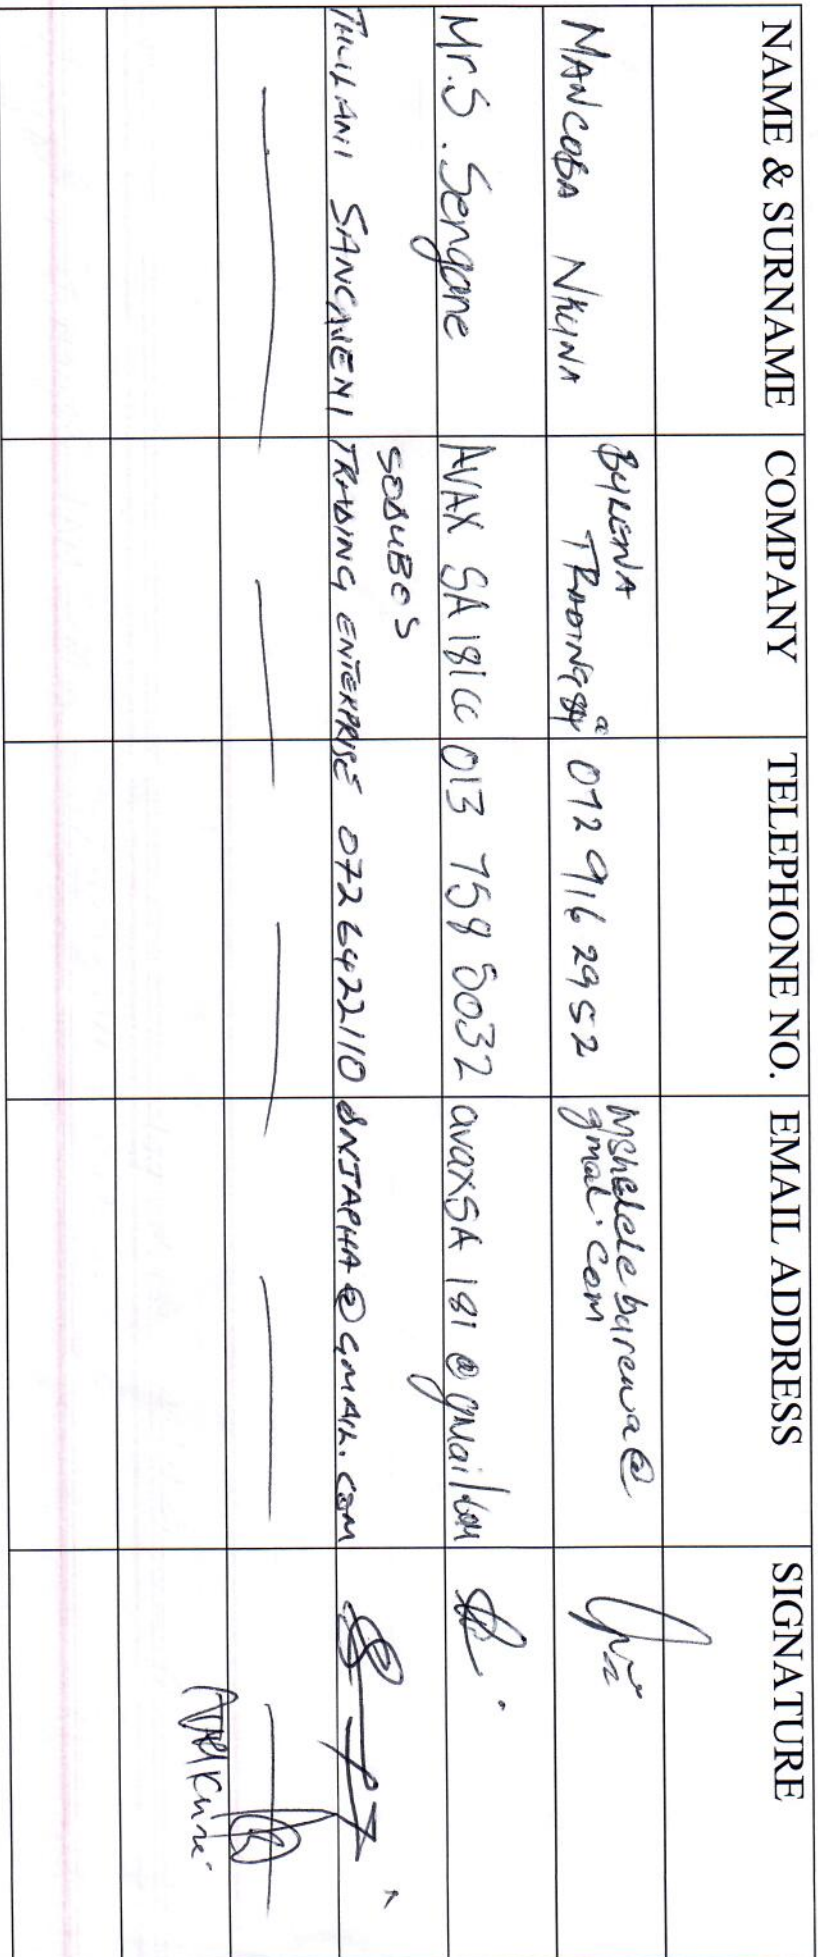 NAME & SURNAME COMPANY TELEPHONE NO. EMAIL ADDRESS SIGNATURE
MANCOBA NKUNA
BURENA
TRADING
072 916 2952
gmail.com
Mr.S. Sengane AVAX SA 181 CC 013 758 8032 avaxSA 181 @ gmail.com
SANGWENI
SODUBOS
TRADING ENTERPRISE 072 6422110 SNTAPHA@GMAIL.COM